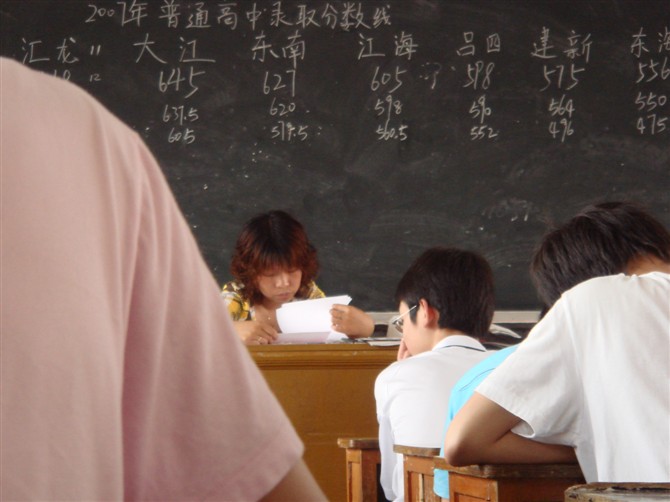 2007年普通高中录取分数线
汇龙" 大江 东南 江海 吕四 建新 东海
645 627 605 598 575 556
637.5 620 598 590 564 550
605 579.5 560.5 552 496 475